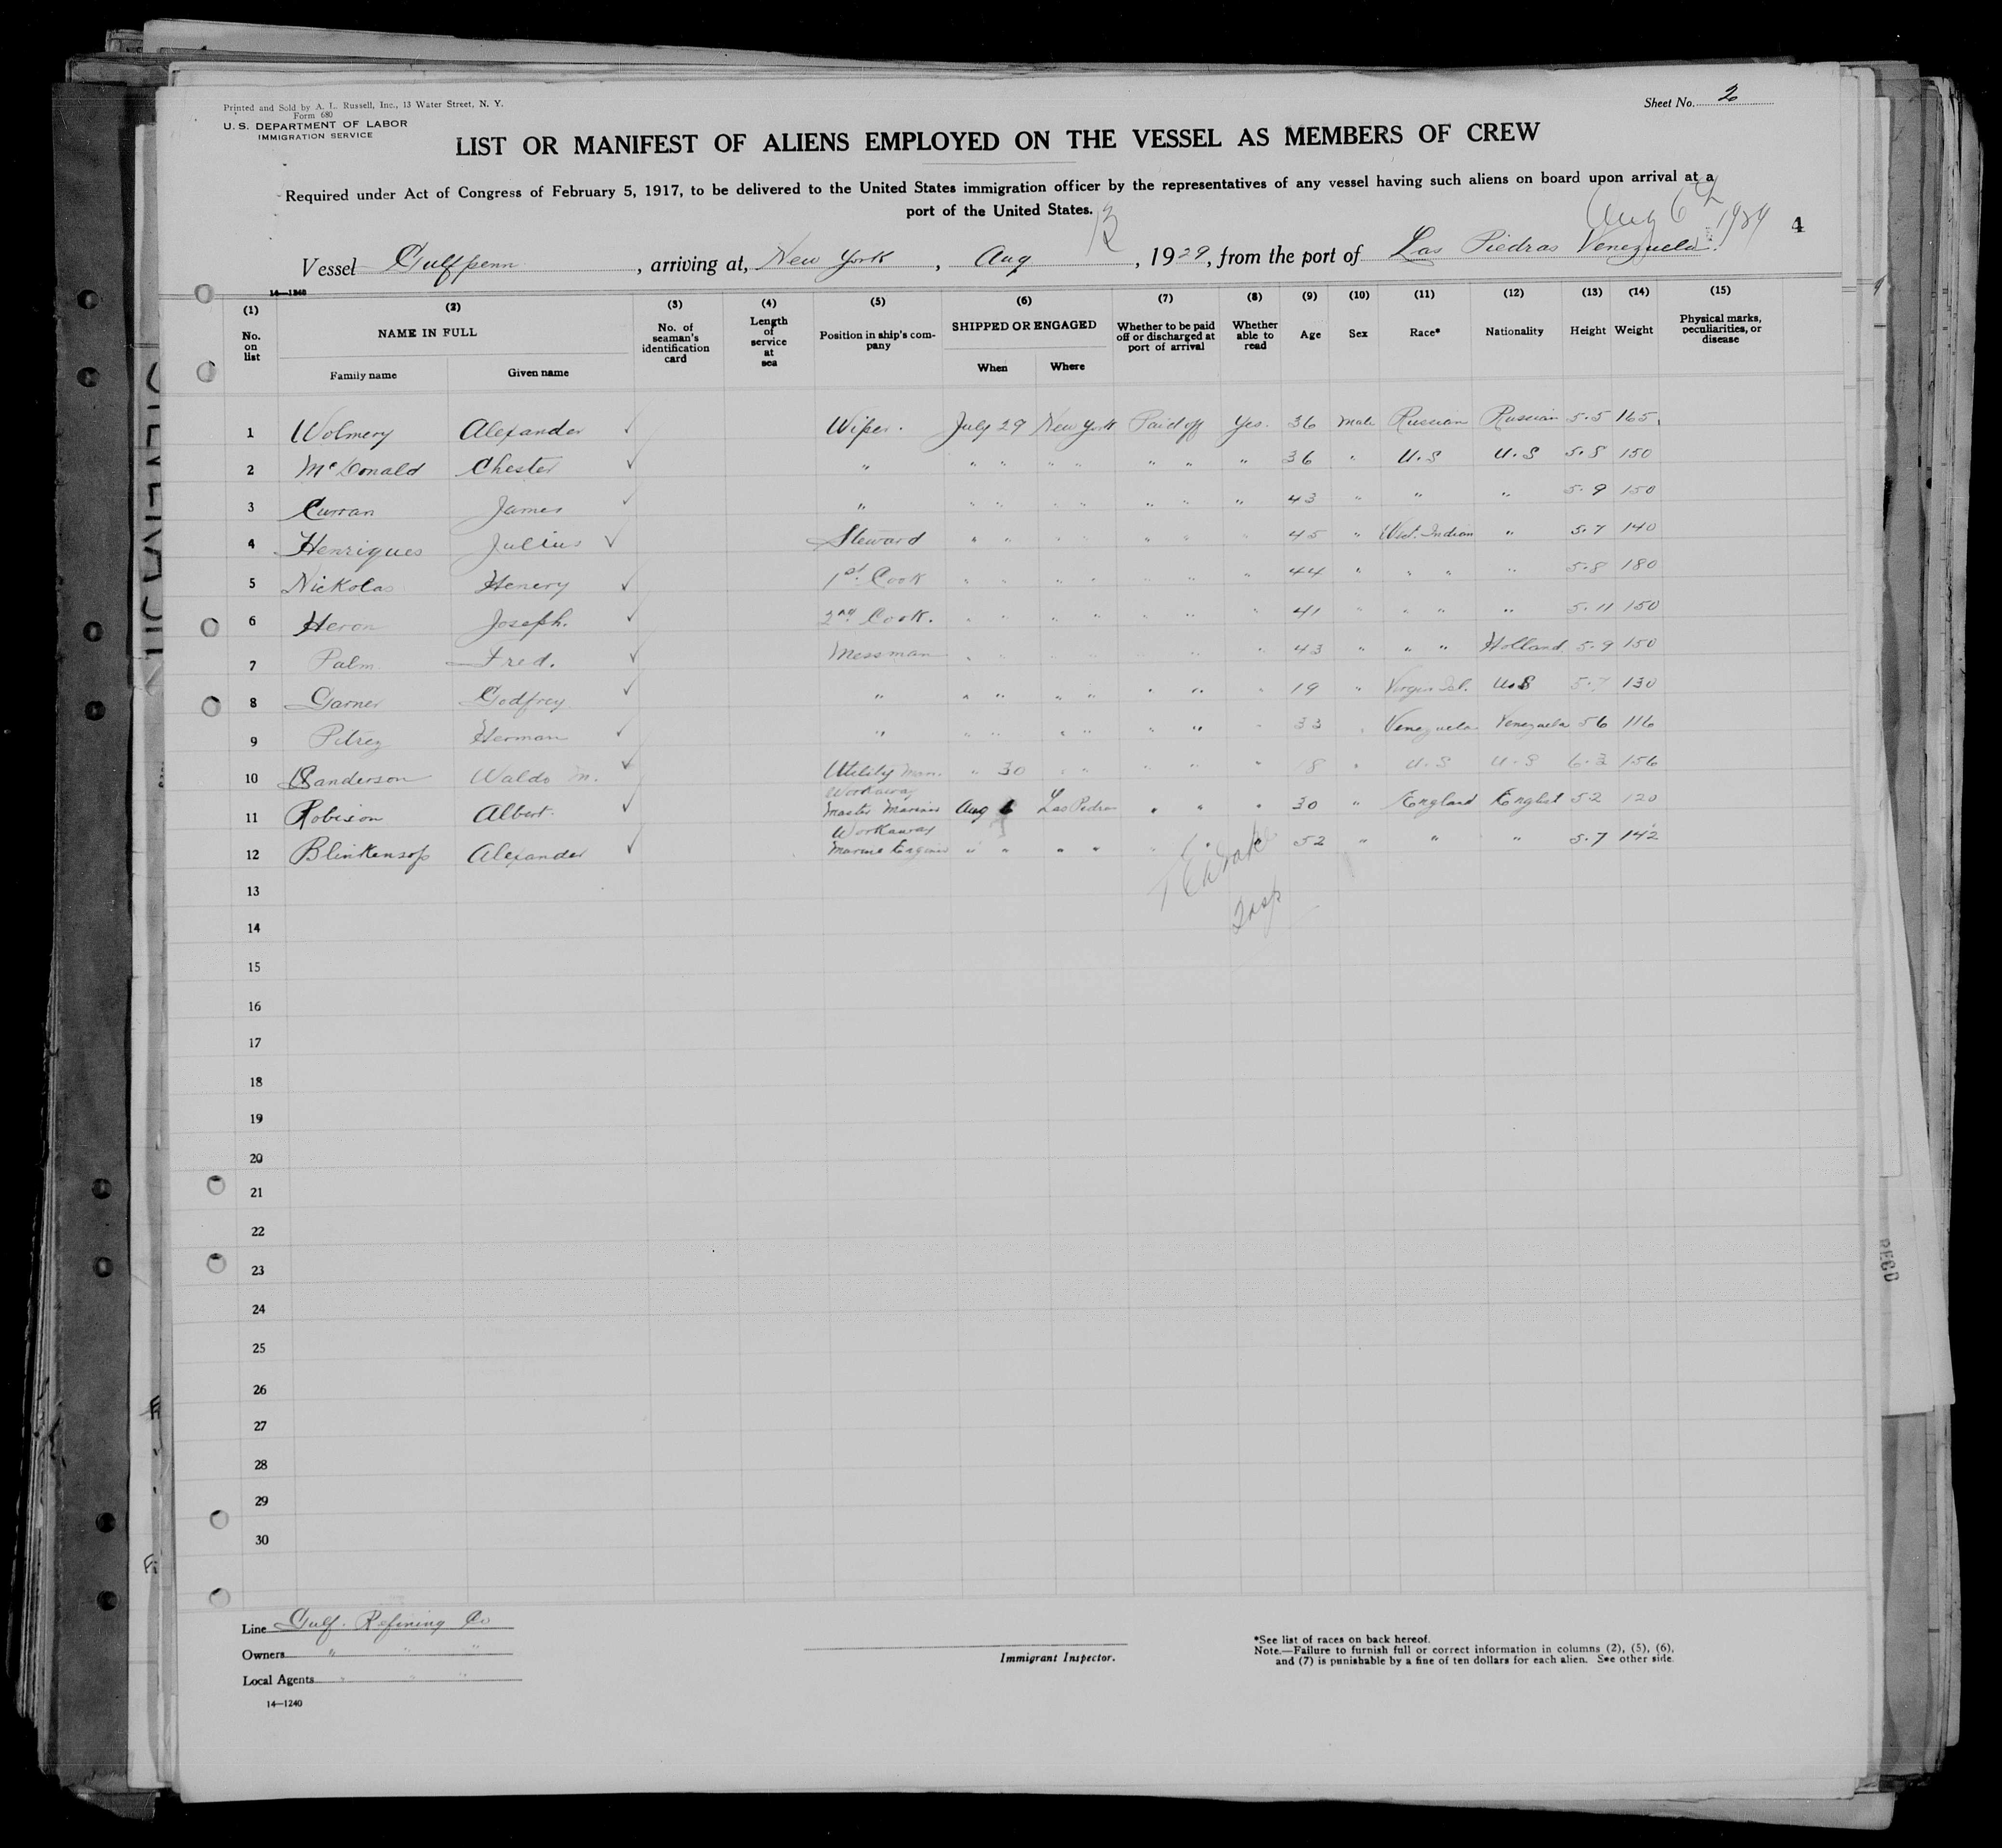 Printed and Sold by A. L. Russell, Inc., 13 Water Street, N. Y.
Form 680
U. S. DEPARTMENT OF LABOR
IMMIGRATION SERVICE
Sheet No. 2
LIST OR MANIFEST OF ALIENS EMPLOYED ON THE VESSEL AS MEMBERS OF CREW
Required under Act of Congress of February 5, 1917, to be delivered to the United States immigration officer by the representatives of any vessel having such aliens on board upon arrival at a
port of the United States.
Aug 6th 1929
4
Vessel Gulfpenn, arriving at, New York, Aug 13, 1929, from the port of Las Piedras Venezuela.
14—1240
(1) (2) (3) (4) (5) (6) (7) (8) (9) (10) (11) (12) (13) (14) (15)
No. on list NAME IN FULL Family name Given name No. of seaman's identification card Length of service at sea Position in ship's company SHIPPED OR ENGAGED When Where Whether to be paid off or discharged at port of arrival Whether able to read Age Sex Race* Nationality Height Weight Physical marks, peculiarities, or disease
1 Wolmery Alexander ✓ Wiper. July 29 New York Paid off Yes. 36 Male Russian Russian 5.5 165
2 McDonald Chester ✓ " " " " " " " " 36 " U.S U.S 5.8 150
3 Curran James ✓ " " " " " " " " 43 " " " 5.9 150
4 Henriques Julius ✓ Steward " " " " " " " 45 " West. Indian " 5.7 140
5 Nickolas Henery ✓ 1st Cook " " " " " " " 44 " " " " 5.8 180
6 Heron Joseph. ✓ 2nd Cook. " " " " " " " 41 " " " " 5.11 150
7 Palm Fred. ✓ Messman " " " " " " " 43 " " " Holland 5.9 150
8 Garner Godfrey ✓ " " " " " " " " 19 " Virgin Isl. U.S 5.7 130
9 Petrey Herman ✓ " " " " " " " " 33 " Venezuela Venezuela 56 116
10 Sanderson Waldo M. ✓ Utility Man. " 30 " " " " " 18 " U.S U.S 6.2 156
11 Robison Albert. ✓ Workaway Master Mariner Aug 6 Las Piedras " " " 30 " England Englist 52 120
12 Blinkensop Alexander ✓ Workaway Marine Engineer " " " " " " " 52 " " " 5.7 142
13
Insp
14
15
16
17
18
19
20
21
22
23
24
25
26
27
28
29
30
Line Gulf. Refining Co
Owners " " "
Local Agents " " "
14—1240
Immigrant Inspector.
*See list of races on back hereof.
Note.—Failure to furnish full or correct information in columns (2), (5), (6),
and (7) is punishable by a fine of ten dollars for each alien. See other side.
RECD